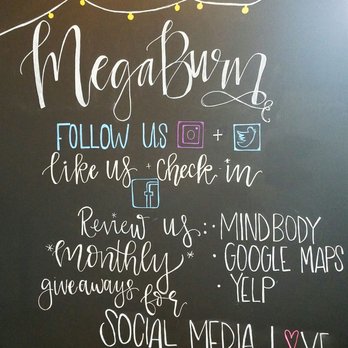 MegaBurn
FOLLOW US +
like us + check in
Review us: · MINDBODY
*Monthly* · GOOGLE MAPS
giveaways · YELP
for
SOCIAL MEDIA LOVE